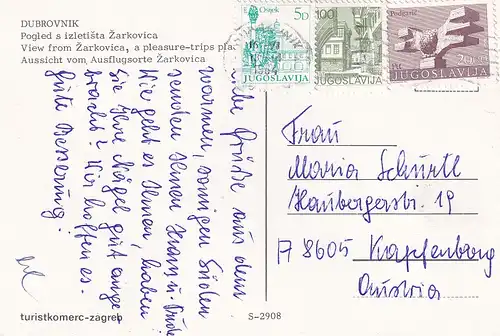 DUBROVNIK
Pogled s izletišta Žarkovica
View from Žarkovica, a pleasure-trips pla
Aussicht vom Ausflugsorte Žarkovica
Osijek 5D
JUGOSLAVIJA
100
JUGOSLAVIJA
Podgarić
JUGOSLAVIJA
1984
Liebe Grüße aus dem
warmen, sonnigen Süden
senden Ihnen
Wie geht es Ihnen, haben
Sie Ihre Nägel gut ange-
bracht? Wir hoffen es.
Gute Besserung!
Frau
Maria Schurtl
Haubergerstr. 19
A 8605 Kapfenberg
Austria
turistkomerc-zagreb
S-2908